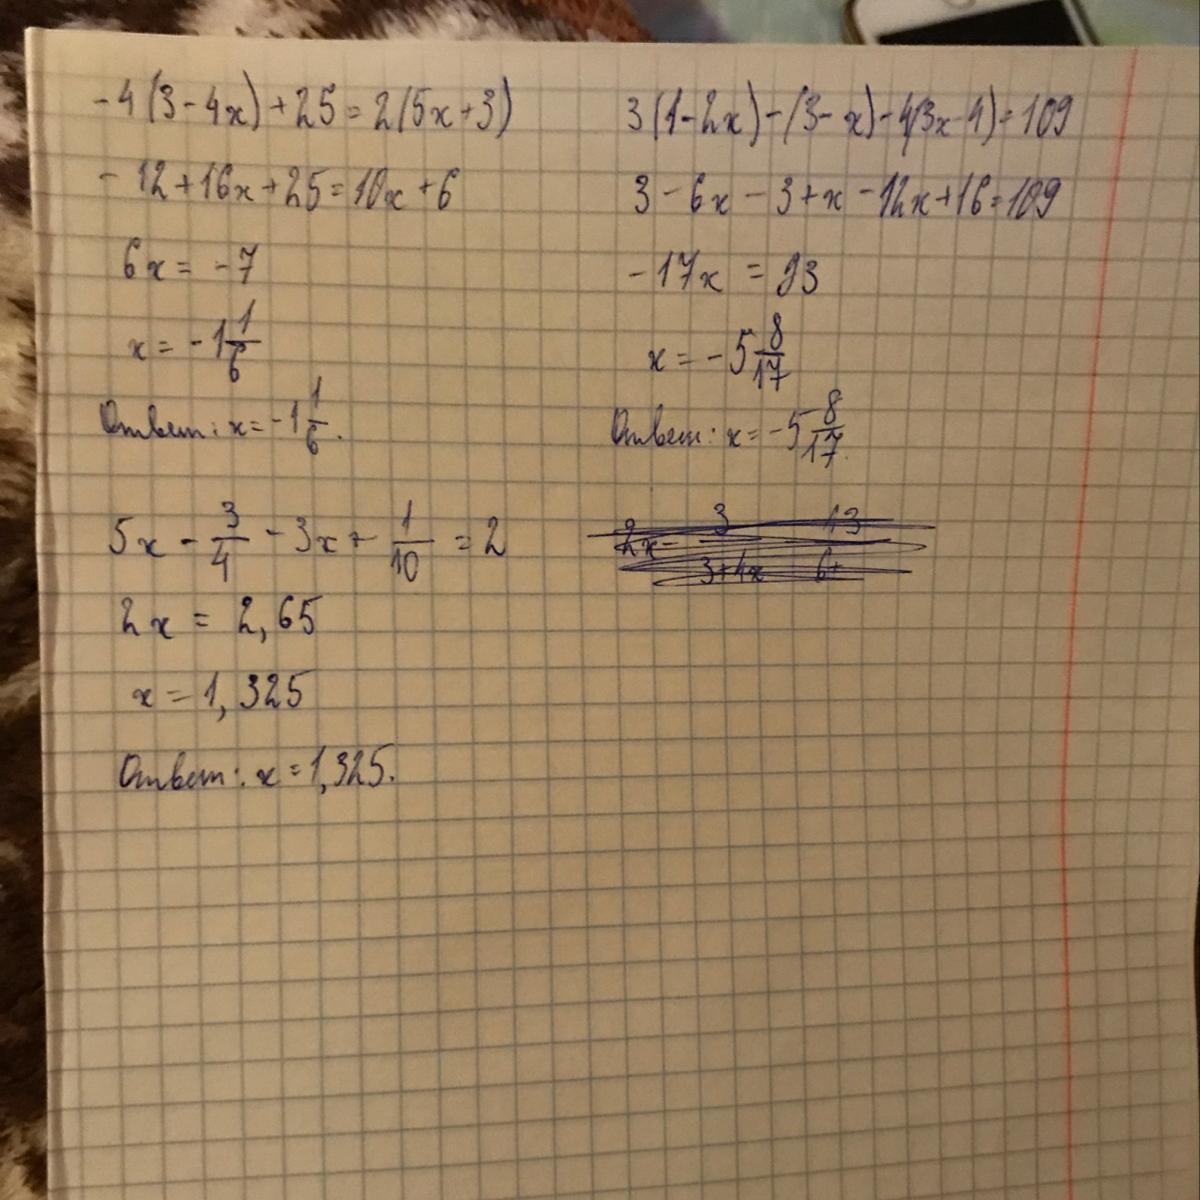 -4(3-4x)+25=2(5x+3)
-12+16x+25=10x+6
6x = -7
x = -1 1/6
Ответ: x=-1 1/6.
3(1-2x)-(3-x)-4(3x-4)=109
3-6x-3+x-12x+16=109
-17x = 93
x = -5 8/17
Ответ: x=-5 8/17.
5x - 3/4 - 3x + 1/10 = 2
2x = 2,65
x = 1,325
Ответ: x=1,325.